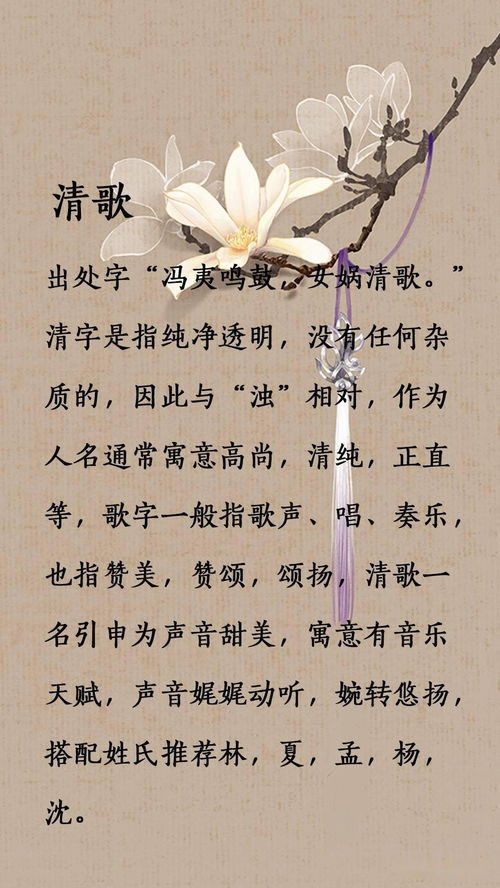 清歌
出处字“冯夷鸣鼓，女娲清歌。”
清字是指纯净透明，没有任何杂
质的，因此与“浊”相对，作为
人名通常寓意高尚，清纯，正直
等，歌字一般指歌声、唱、奏乐，
也指赞美，赞颂，颂扬，清歌一
名引申为声音甜美，寓意有音乐
天赋，声音娓娓动听，婉转悠扬，
搭配姓氏推荐林，夏，孟，杨，
沈。